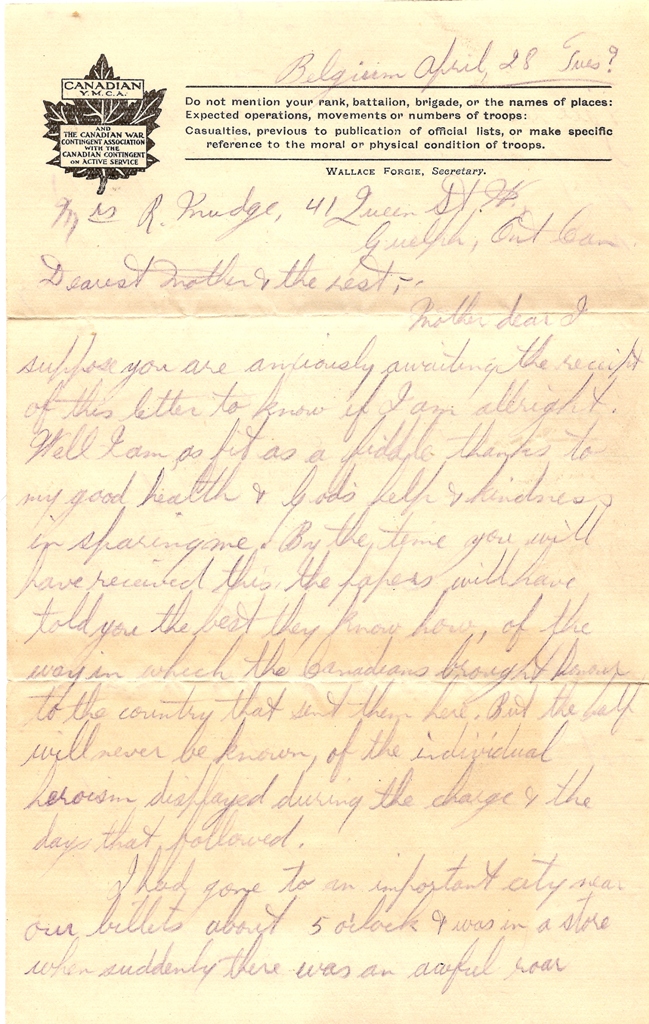 Belgium April, 28 Tues?
CANADIAN
Y.M.C.A.
AND
THE CANADIAN WAR
CONTINGENT ASSOCIATION
WITH THE
CANADIAN CONTINGENT
ON ACTIVE SERVICE
Do not mention your rank, battalion, brigade, or the names of places:
Expected operations, movements or numbers of troops:
Casualties, previous to publication of official lists, or make specific
reference to the moral or physical condition of troops.
WALLACE FORGIE, Secretary.
Mrs R. Mudge, 41 Queen St. W,
Guelph, Ont Can.
Dearest Mother & the rest,-
Mother dear I
suppose you are anxiously awaiting the receipt
of this letter to know if I am allright.
Well I am as fit as a fiddle thanks to
my good health & God's help & kindness
in sparing me. By the time you will
have received this, the papers will have
told you the best they know how, of the
way in which the Canadians brought honour
to the country that sent them here. But the half
will never be known, of the individual
heroism displayed during the charge & the
days that followed.
I had gone to an important city near
our billets about 5 o'clock & was in a store
when suddenly there was an awful roar